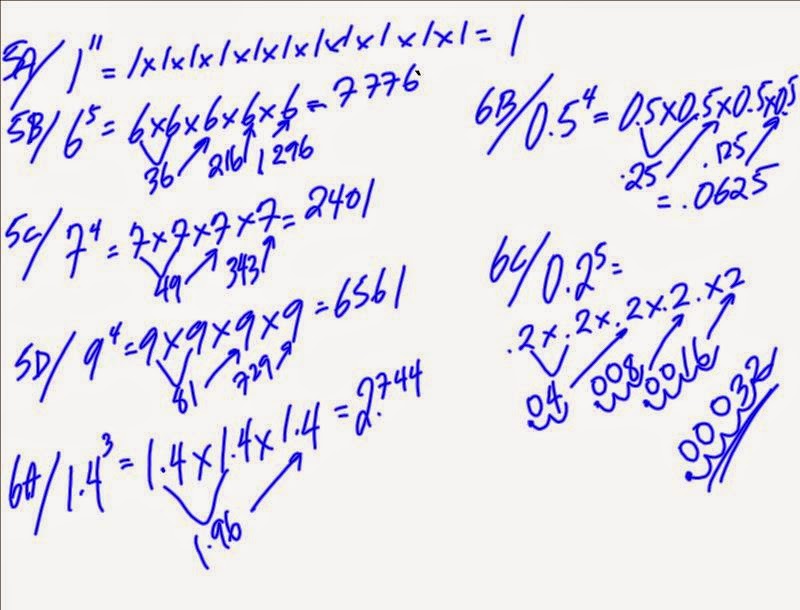 5A/ 1¹¹ = 1x1x1x1x1x1x1x1x1x1x1 = 1
5B/ 6⁵ = 6x6x6x6x6 = 7776
36 216 1296
5C/ 7⁴ = 7x7x7x7 = 2401
49 343
5D/ 9⁴ = 9x9x9x9 = 6561
81 729
6A/ 1.4³ = 1.4x1.4x1.4 = 2.744
1.96
6B/ 0.5⁴ = 0.5x0.5x0.5x0.5
.25 .125
= .0625
6C/ 0.2⁵ =
.2x.2x.2x.2.x2
.04 .008 .0016
.00032